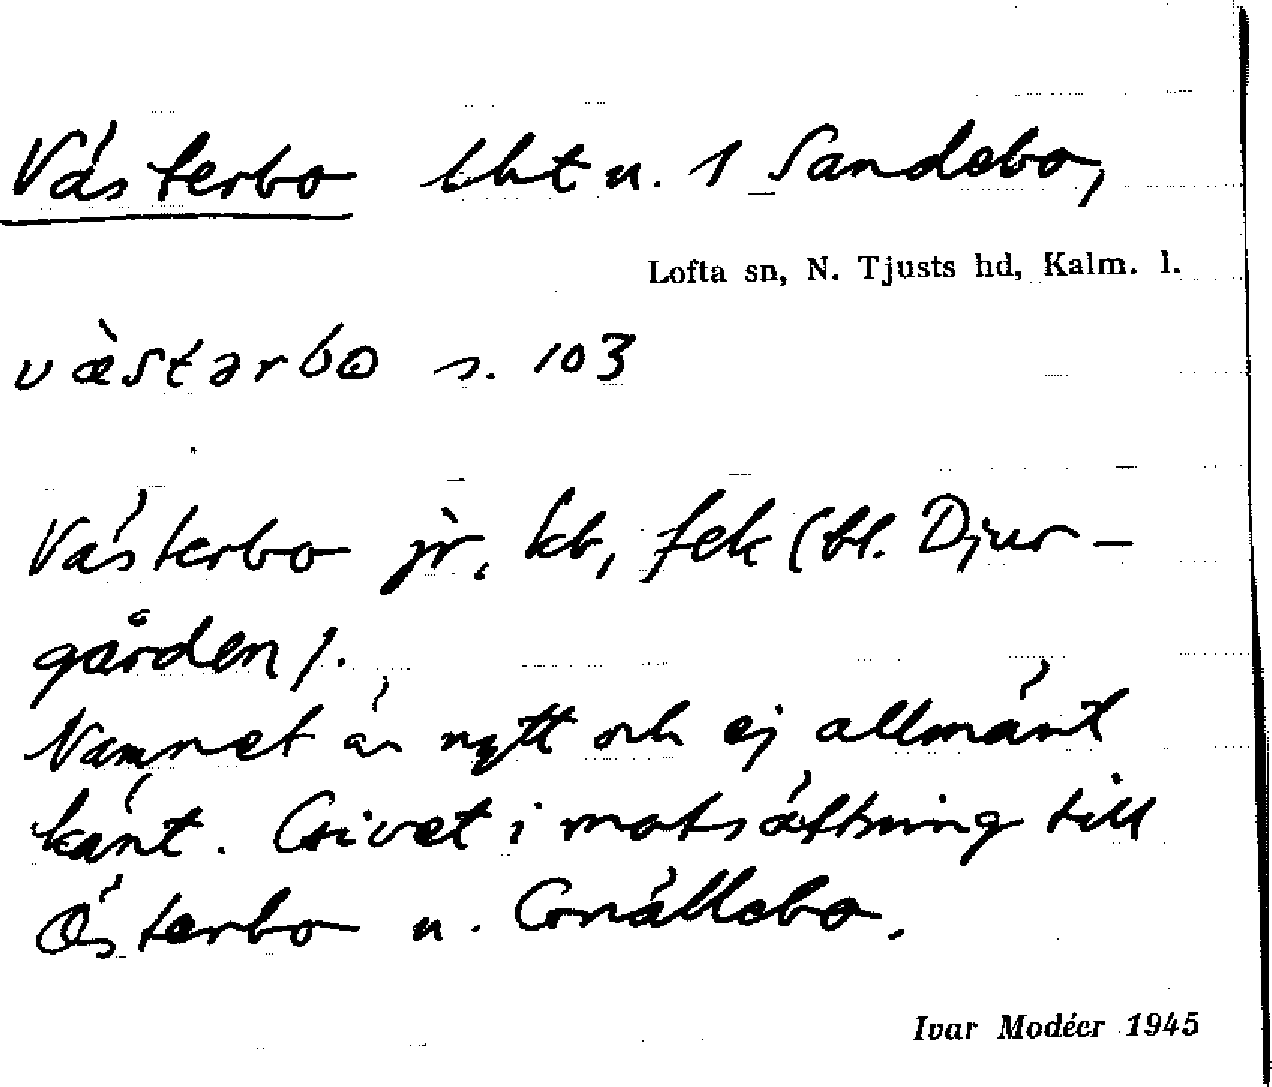 Västerbo lht u. 1 Sandebo,
Lofta sn, N. Tjusts hd, Kalm. l.
væ̀stərbo s. 103
Västerbo jr, kb, fek (bl. Djur-
gården).
Namnet är nytt och ej allmänt
känt. Givet i motsättning till
Österbo u. Gnällebo.
Ivar Modéer 1945